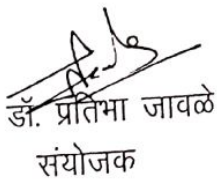 डॉ. प्रतिभा जावळे
संयोजक